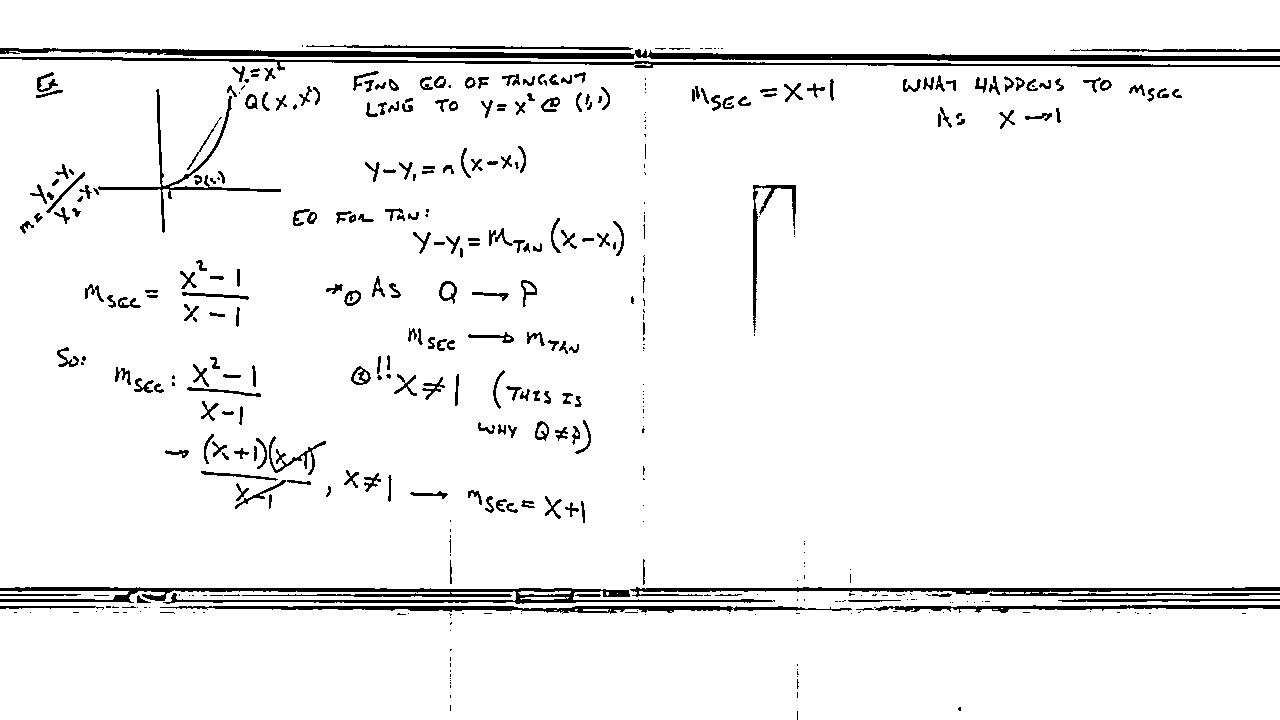 Ex
Y=X²
Q(X,X²)
P(1,1)
1
m=Y₂-Y₁/X₂-X₁
FIND EQ. OF TANGENT
LING TO Y=X² @ (1,1)
Y-Y₁=m(X-X₁)
EQ FOR TAN:
Y-Y₁=M_TAN(X-X₁)
M_SEC = X²-1/X-1
→① AS Q → P
M_SEC → M_TAN
SO: M_SEC: X²-1/X-1
②!! X≠1 (THIS IS
WHY Q≠P)
→ (X+1)(X-1)/X-1, X≠1 → M_SEC=X+1
M_SEC=X+1
WHAT HAPPENS TO M_SEC
AS X→1